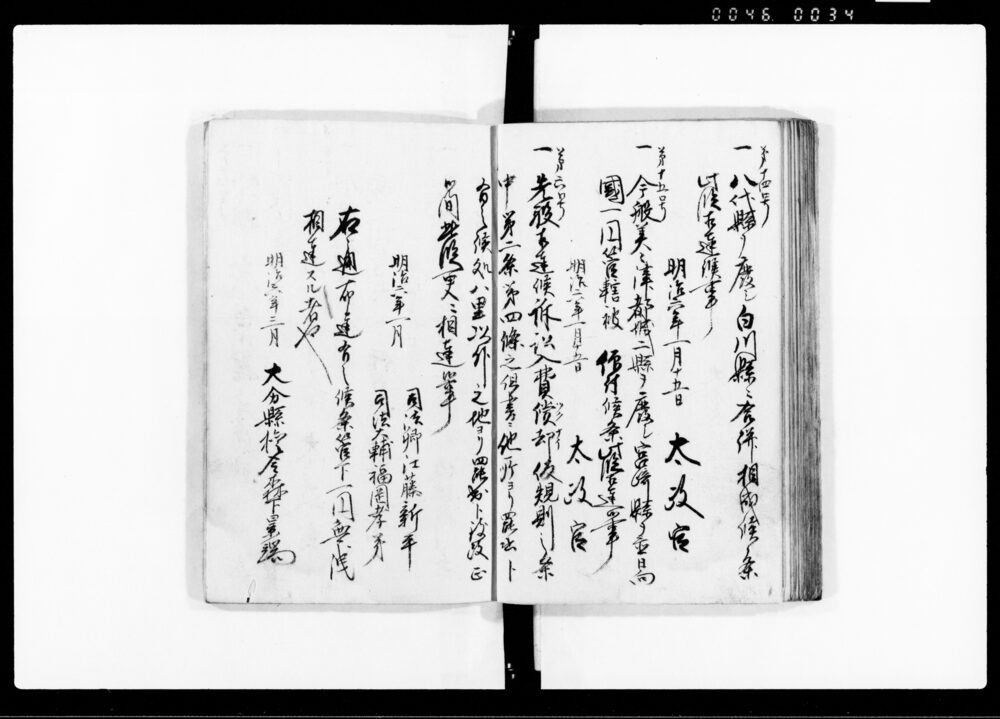 0046. 0034
第十四号
一 八代縣ヲ廃シ白川縣ニ合併相成候条
此段相達候事
明治六年一月十五日
太政官
第十五号
一 今般美々津都城二縣ヲ廃シ宮崎縣ヲ置日向
國一円管轄被 仰付候条此段相達候事
明治六年一月十五日
太政官
第六号
一 先般相達候訴訟入費償却仮規則之条
中第二条第四條之但書ニ他所ヨリ罷出ト
有之候処八里以外之地ヨリ罷出ト改段正
候間此段更ニ相達候事
明治六年一月
司法卿江藤新平
司法大輔福岡孝弟
右之通布達有之候条管下一円無洩
相達スル者也
明治六年二月
大分縣権令森下景端